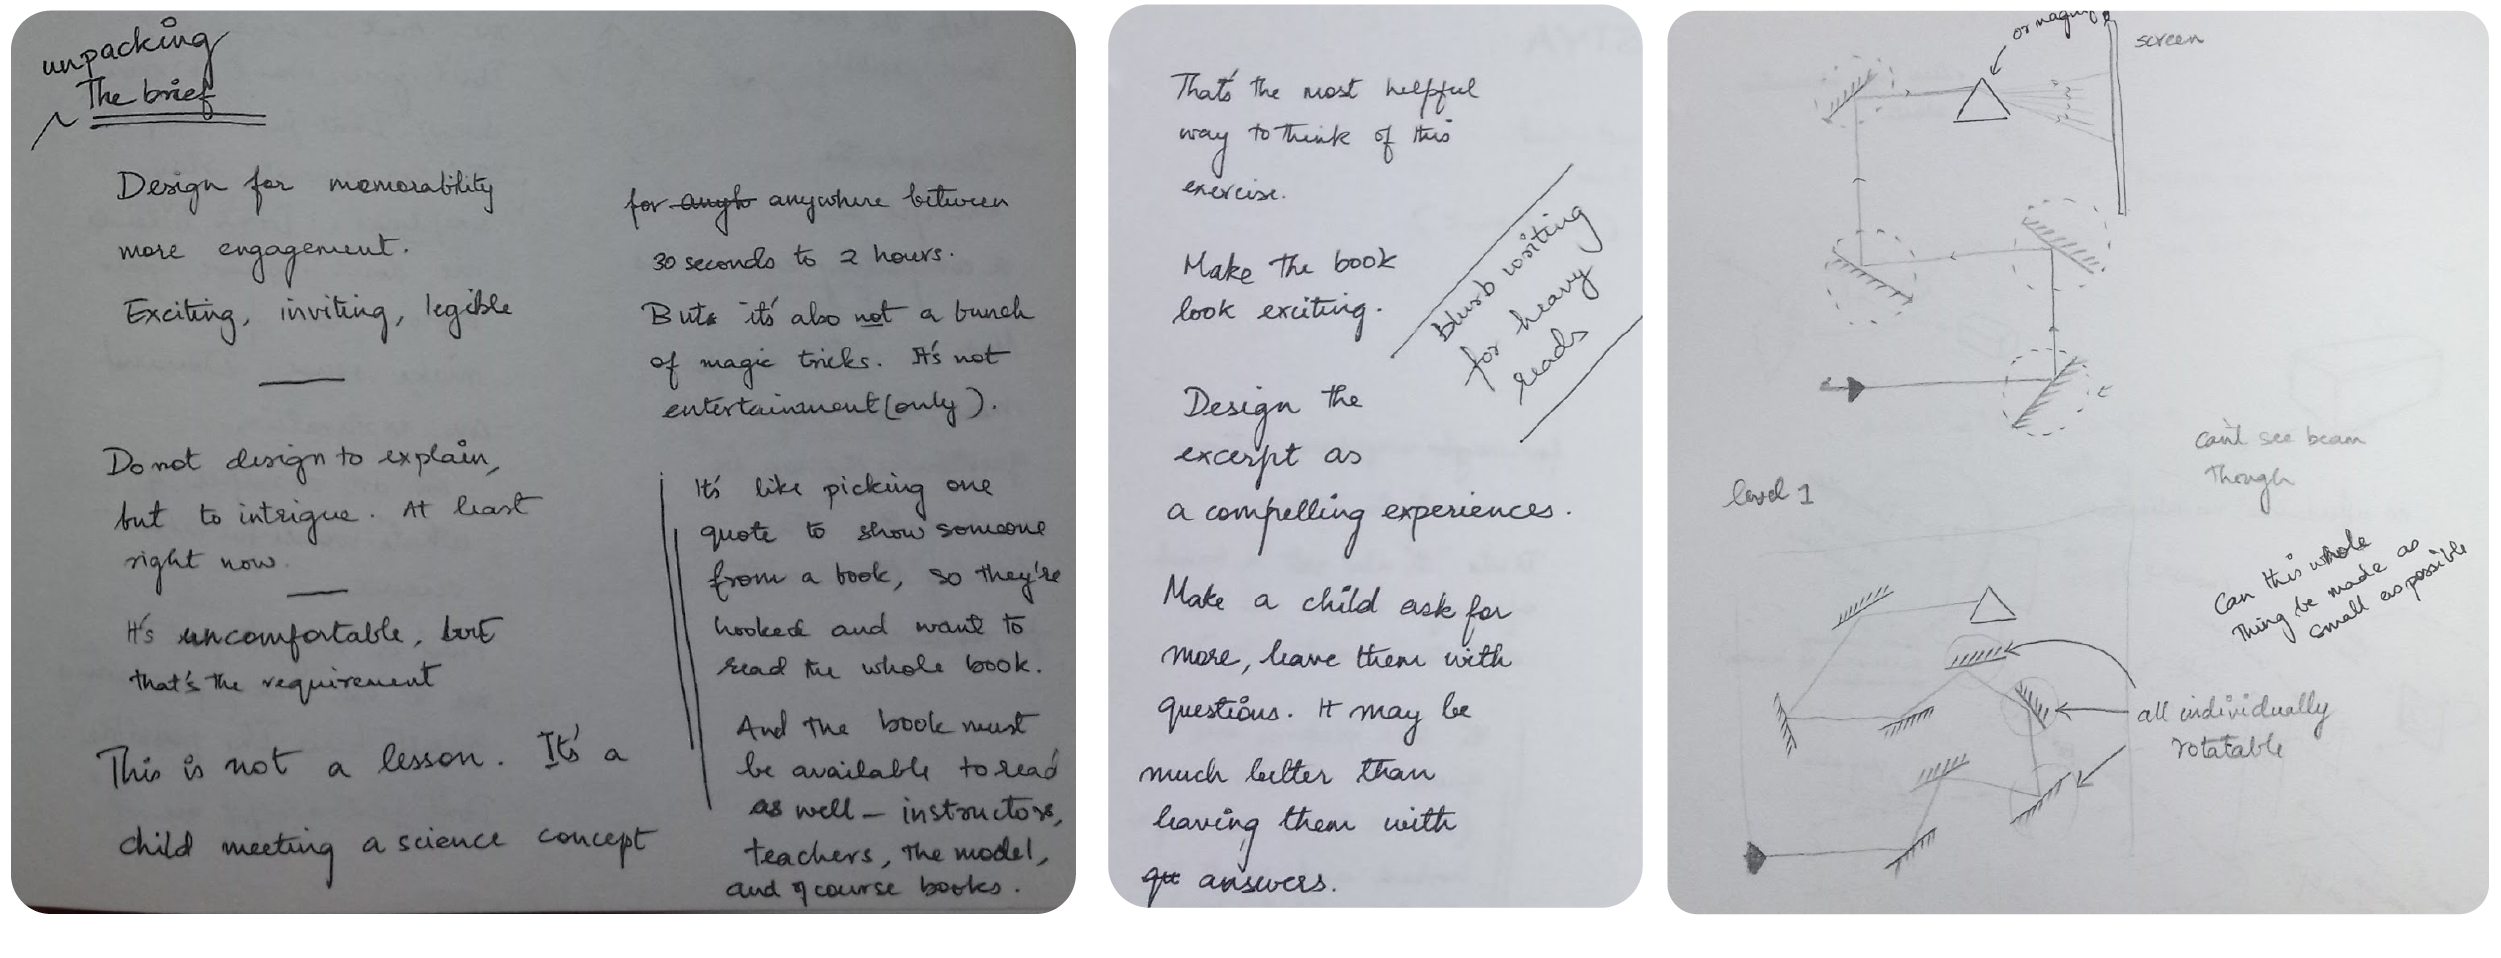 unpacking
The brief
Design for memorability
more engagement.
Exciting, inviting, legible
Do not design to explain,
but to intrigue. At least
right now.
It's uncomfortable, but
that's the requirement
This is not a lesson. It's a
child meeting a science concept
for anywhere between
30 seconds to 2 hours.
But it's also not a bunch
of magic tricks. It's not
entertainment (only).
It's like picking one
quote to show someone
from a book, so they're
hooked and want to
read the whole book.
And the book must
be available to read
as well - instructors,
teachers, the model,
and of course books.
That's the most helpful
way to think of this
exercise.
Make the book
look exciting.
Blurb writing
for heavy
reads
Design the
excerpt as
a compelling experiences.
Make a child ask for
more, leave them with
questions. It may be
much better than
leaving them with
qu answers.
or
screen
can't see beam
though
level 1
Can this whole
thing be made as
small as possible
all individually
rotatable